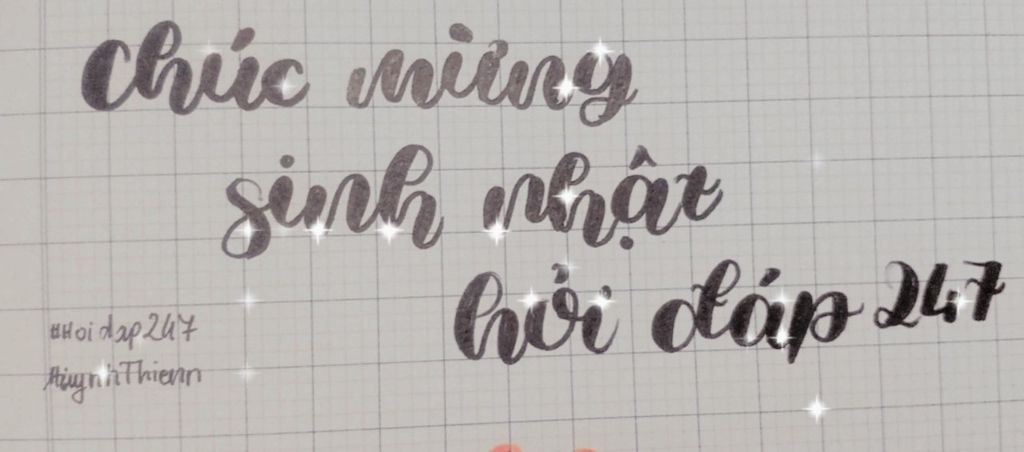 Chúc mừng
sinh nhật
hỏi đáp 247
#Hoidap247
#HuynhThienn